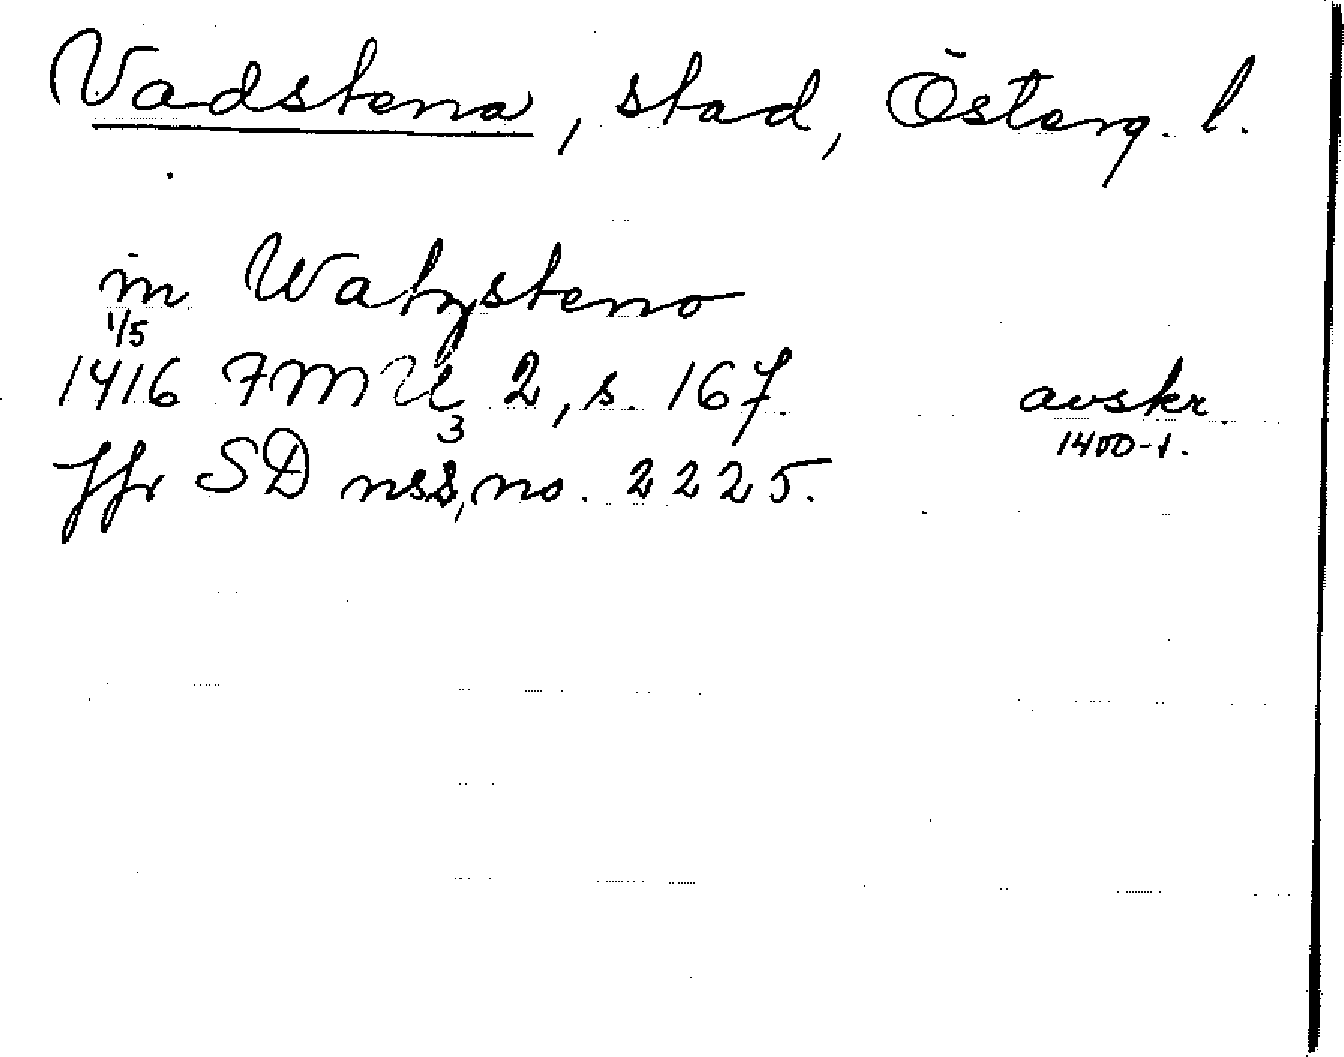 Vadstena, stad, Österg. l.
in Watzsteno
1/5
1416 FMU 2, s. 167. avskr.
3 1400-t.
Jfr SD ns 3, no. 2225.